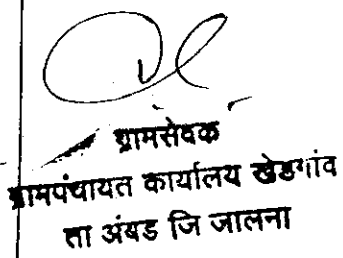 ग्रामसेवक
ग्रामपंचायत कार्यालय खेडगांव
ता अंबड जि जालना